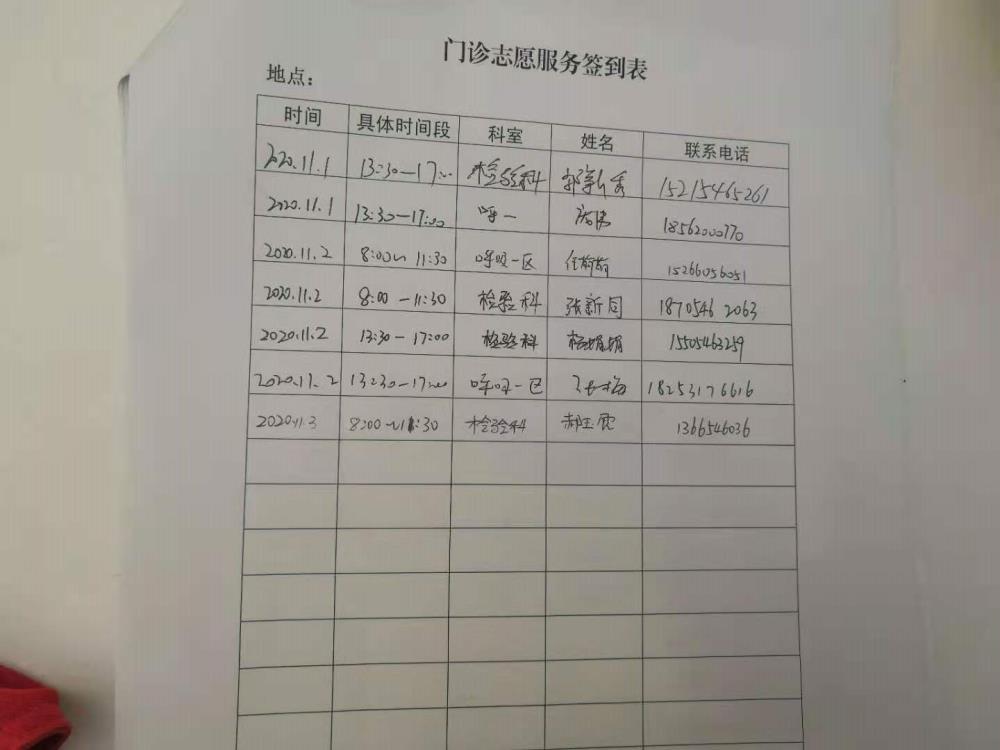 门诊志愿服务签到表
地点：
时间 具体时间段 科室 姓名 联系电话
2020.11.1 13:30—17:00 检验科 15215465261
2020.11.1 13:30—17:00 呼一 18562000770
2020.11.2 8:00~11:30 呼吸一区 任萌萌 15266056051
2020.11.2 8:00—11:30 检验科 张新同 18705462063
2020.11.2 13:30—17:00 检验科 杨娟娟 15505463259
2020.11.2 13:30—17:00 呼吸一区 18253176616
2020.11.3 8:00~11:30 检验科 1366546036